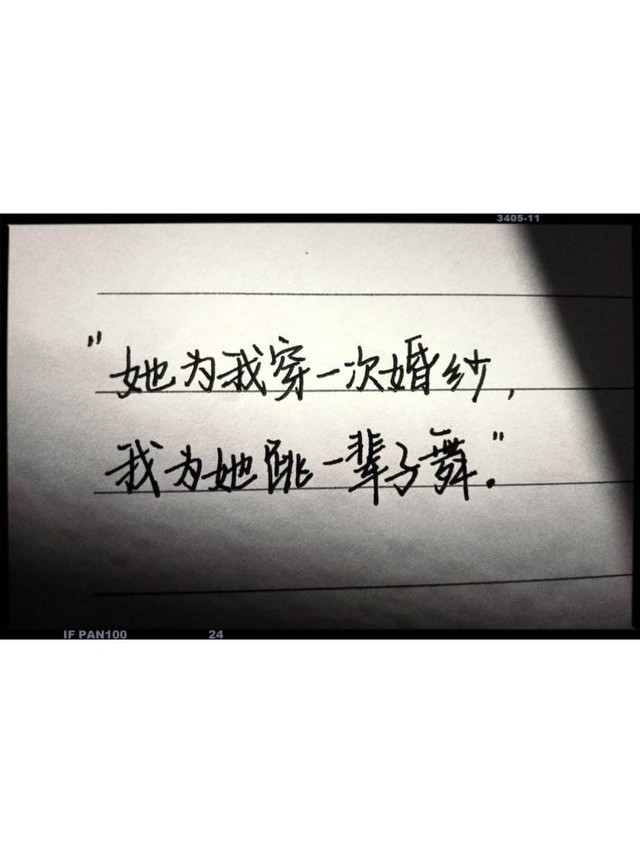 3405-11
"她为我穿一次婚纱,
我为她跳一辈子舞."
IF PAN100 24